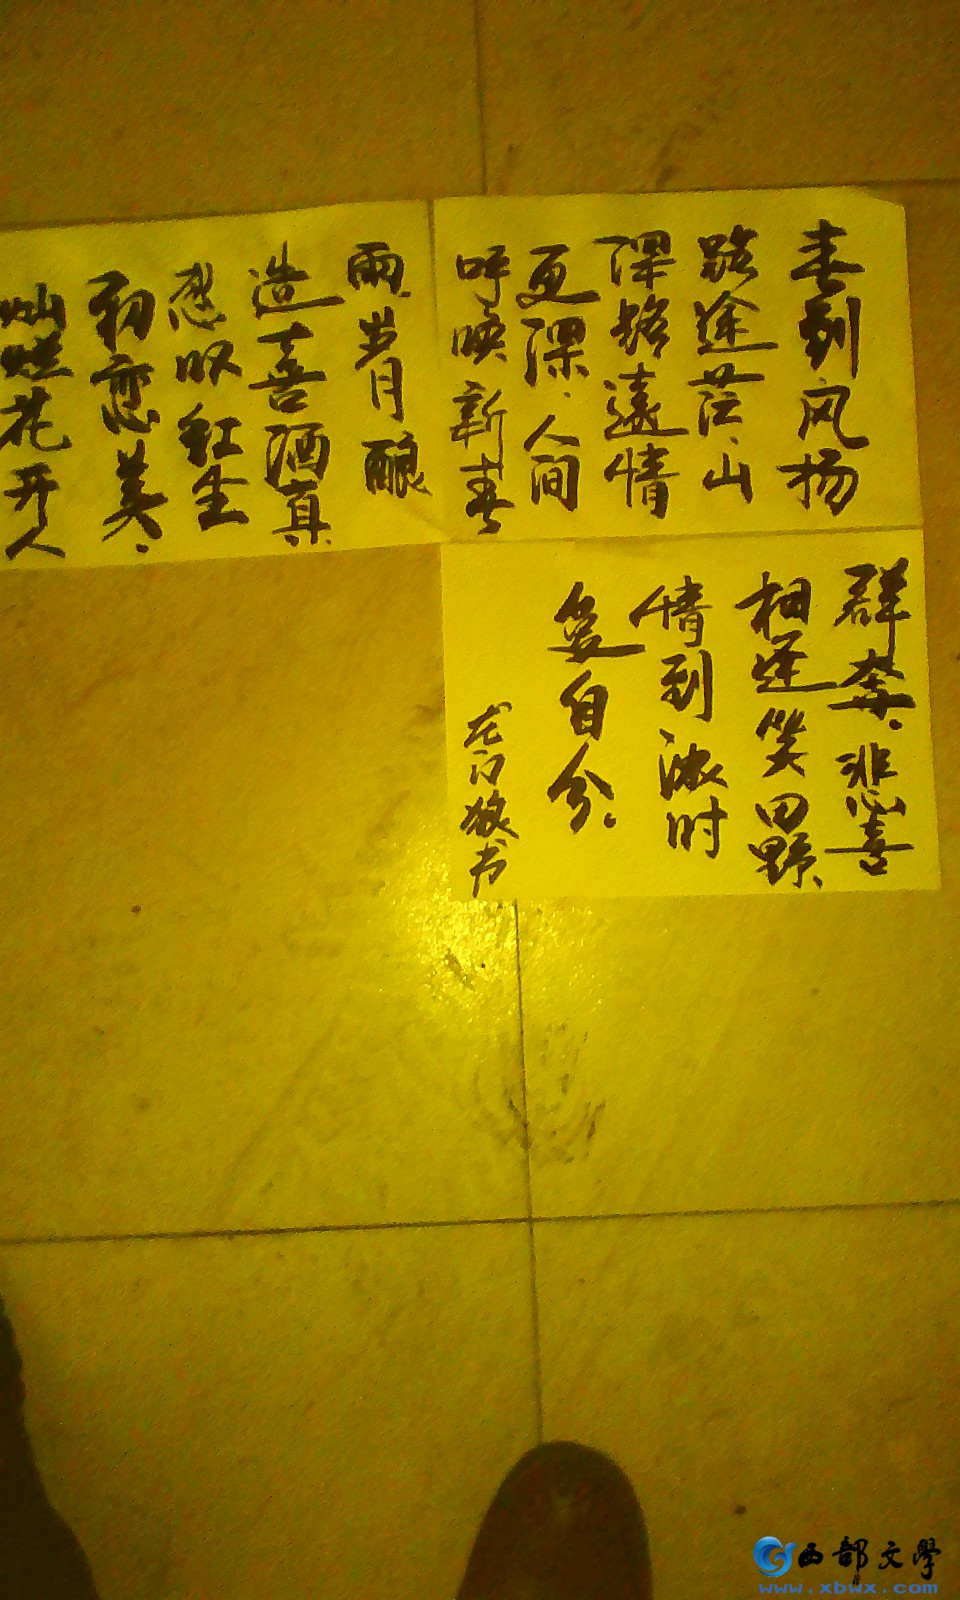 春到风扬
路途茫、山
深路遠情
更深、人间
呼唤新春
雨、岁月酿
造喜酒真
忍叹红尘
初恋美、
灿烂花开人
群奔、悲喜
相逢笑田野、
情到浓时
爱自分。
龙门狼书
西部文學
www.xbwx.com